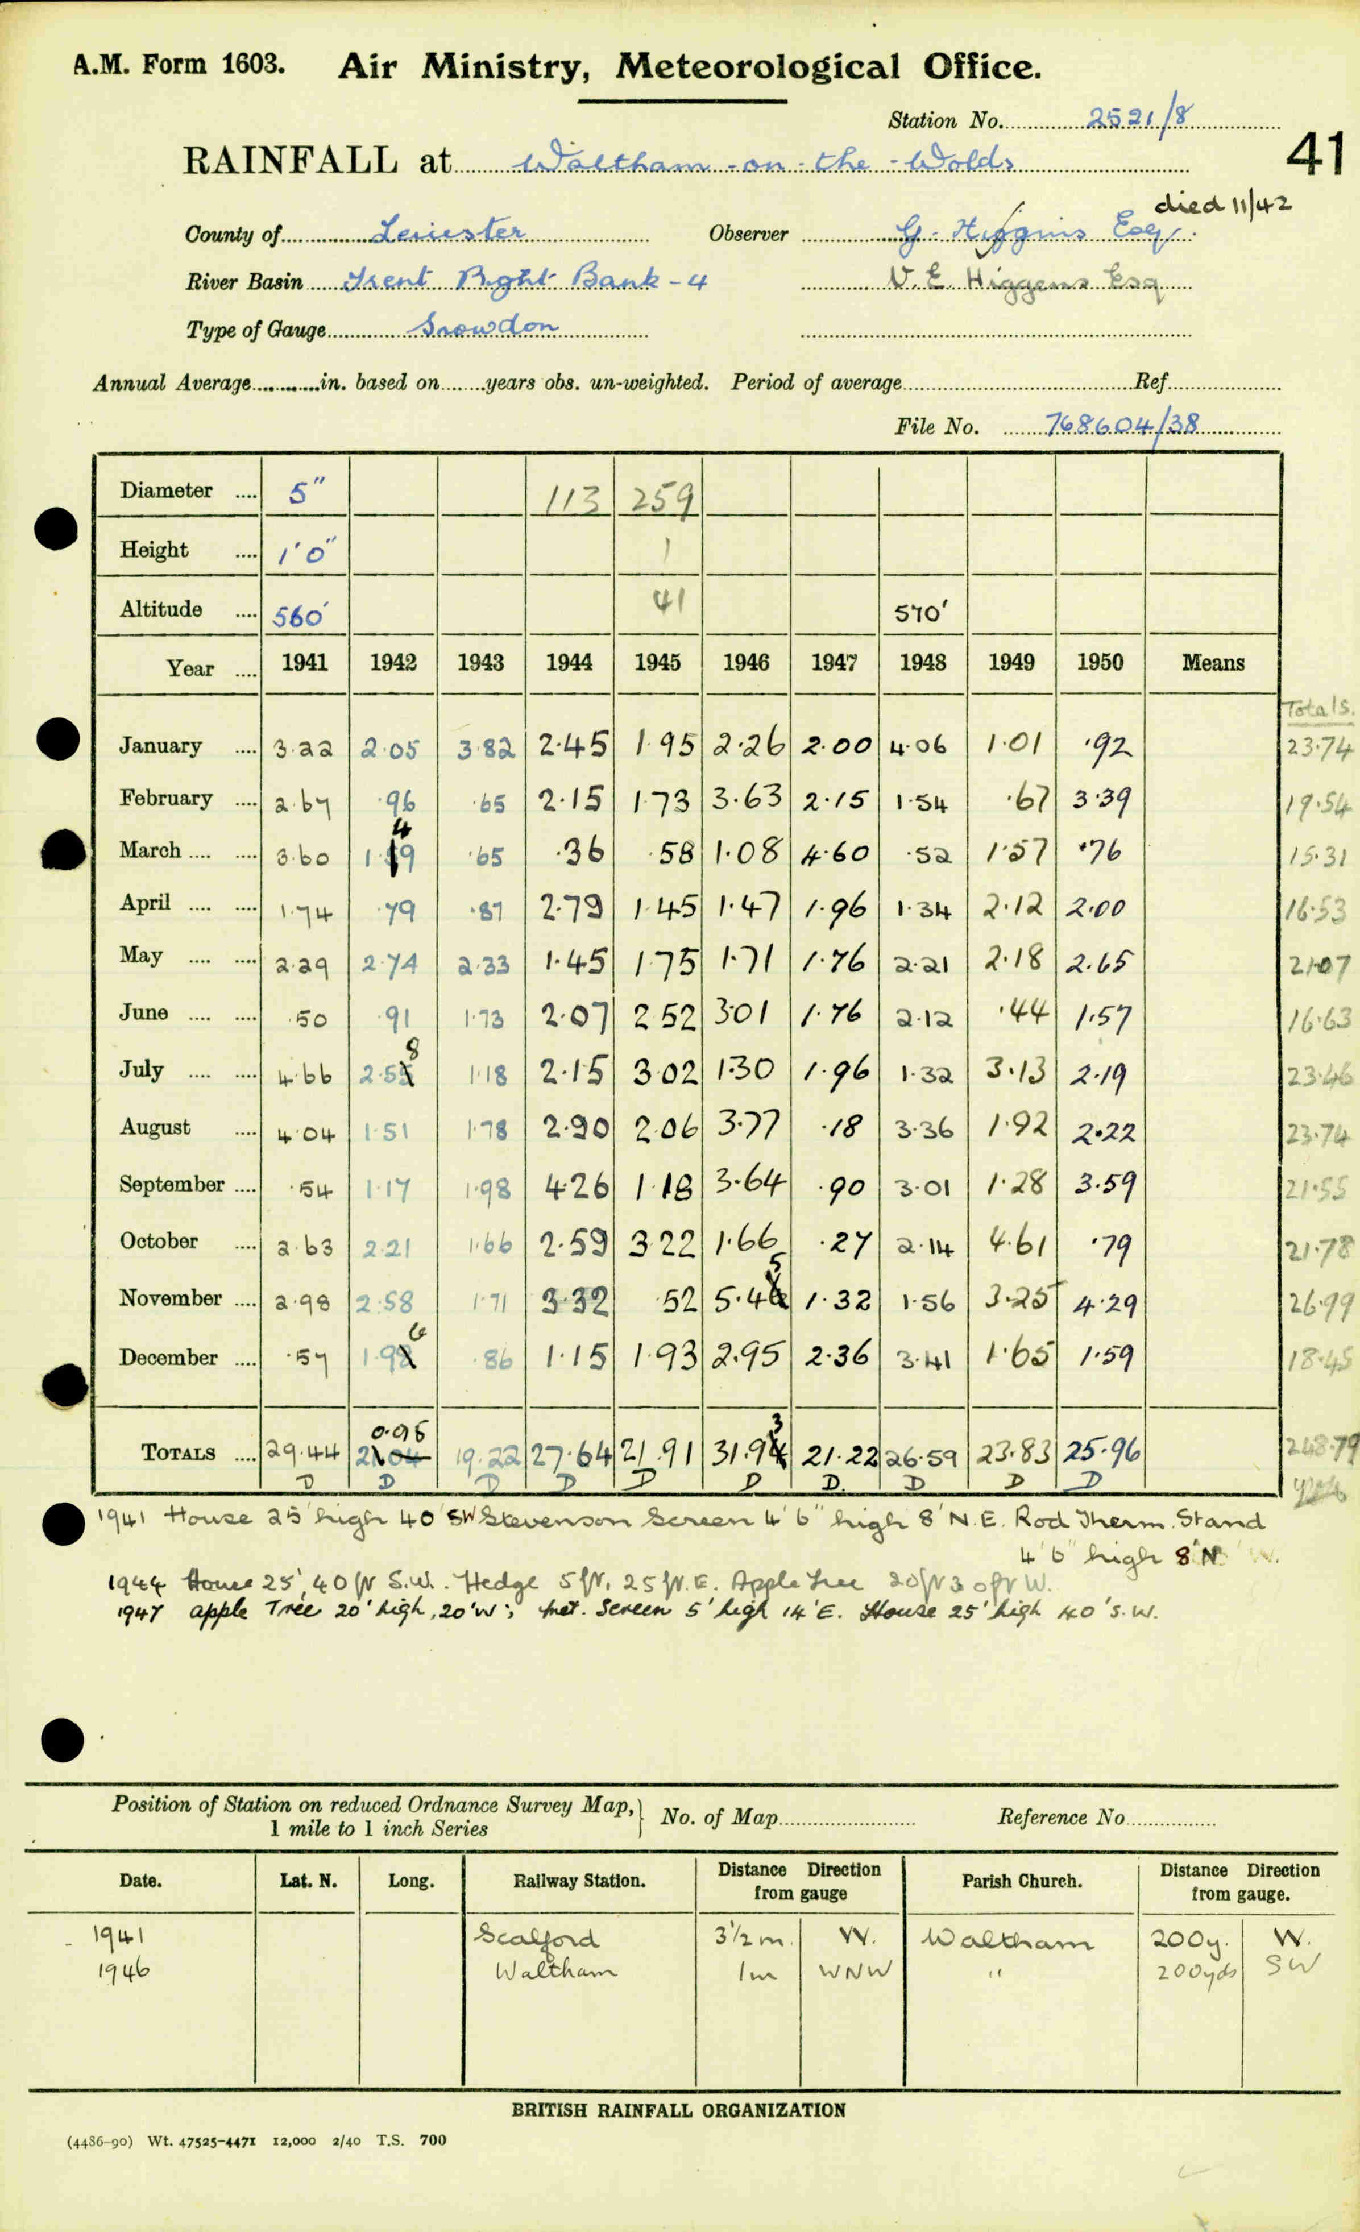 A.M. Form 1603. Air Ministry, Meteorological Office.
Station No. 2521/8
RAINFALL at Waltham-on-the-Wolds 41
died 11/42
County of Leicester Observer G. Higgins Esq.
River Basin Trent Right Bank - 4 V.E. Higgens Esq
Type of Gauge Snowdon
Annual Average in. based on years obs. un-weighted. Period of average Ref
File No. 768604/38
Diameter 5" 113 259
Height 1'0" 1
Altitude 560' 41 570'
Year 1941 1942 1943 1944 1945 1946 1947 1948 1949 1950 Means
Totals.
January 3.22 2.05 3.82 2.45 1.95 2.26 2.00 4.06 1.01 .92 23.74
February 2.67 .96 .65 2.15 1.73 3.63 2.15 1.54 .67 3.39 19.54
4
March 3.60 1.19 .65 .36 .58 1.08 4.60 .52 1.57 .76 15.31
April 1.74 .79 .87 2.79 1.45 1.47 1.96 1.34 2.12 2.00 16.53
May 2.29 2.74 2.33 1.45 1.75 1.71 1.76 2.21 2.18 2.65 21.07
June .50 .91 1.73 2.07 2.52 3.01 1.76 2.12 .44 1.57 16.63
8
July 4.66 2.5 1.18 2.15 3.02 1.30 1.96 1.32 3.13 2.19 23.46
August 4.04 1.51 1.78 2.90 2.06 3.77 .18 3.36 1.92 2.22 23.74
September .54 1.17 1.98 4.26 1.18 3.64 .90 3.01 1.28 3.59 21.55
October 2.63 2.21 1.66 2.59 3.22 1.66 .27 2.14 4.61 .79 21.78
5
November 2.98 2.58 1.71 3.32 .52 5.46 1.32 1.56 3.25 4.29 26.99
6
December .57 1.9 .86 1.15 1.93 2.95 2.36 3.41 1.65 1.59 18.45
0.95 3
TOTALS 29.44 21.04 19.22 27.64 21.91 31.94 21.22 26.59 23.83 25.96 248.79
D D D D D D D. D D D
1941 House 25' high 40' SW Stevenson Screen 4'6" high 8' N.E. Rod Therm. Stand
4'6" high 8'N W.
1944 House 25', 40 ft S.W. Hedge 5 ft, 25 ft E. Apple Tree 20 ft 30 ft W.
1947 apple Tree 20' high, 20'W; Met. Screen 5' high 14'E. House 25' high 40'S.W.
Position of Station on reduced Ordnance Survey Map, 1 mile to 1 inch Series } No. of Map Reference No.
Date. Lat. N. Long. Railway Station. Distance Direction from gauge Parish Church. Distance Direction from gauge.
1941 Scalford 3½ m. W. Waltham 200y. W.
1946 Waltham 1m WNW " 200yds SW
BRITISH RAINFALL ORGANIZATION
(4486-90) Wt. 47525-4471 12,000 2/40 T.S. 700